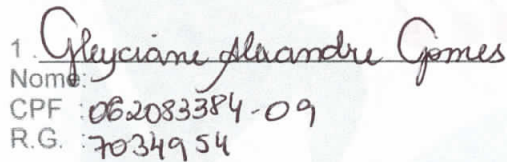 1. Gleyciane Alexandre Gomes
Nome:
CPF :062083384-09
R.G. :7034954